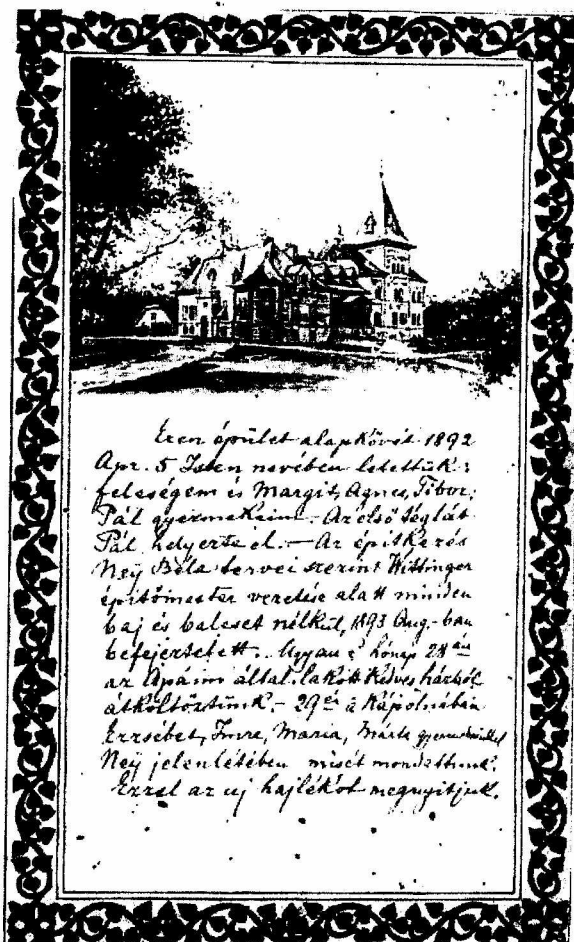 Ezen épület alapkövét 1892
Apr. 5 Isten nevében letettük:
feleségem és Margit, Agnes, Tibor,
Pál gyermekeim. Az első téglát
Pál helyezte el. — Az építkezés
Neÿ Béla tervei szerint Wittinger
építőmester vezetése alatt minden
baj és baleset nélkül, 1893 Aug.-ban
befejeztetett. Ugyan é hónap 28án
az Apáim által lakott kedves házból
átköltöztünk. — 29én a Kápolnában
Erzsébet, Imre, Maria, Márta gyermekeinkkel
Neÿ jelenlétében misét mondattunk.
Ezzel az uj hajlékot megnyitjuk.